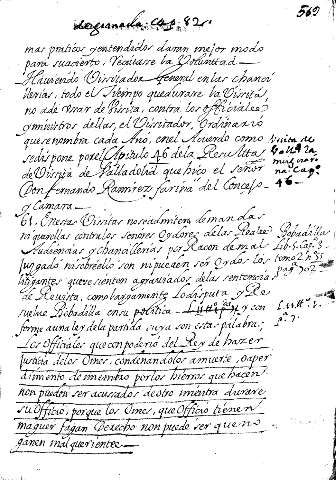 de granada. Cap. 82.
569
mas praticos y entendidos daran mejor modo
para su acierto. Vease la Voluntad
Haviendo Vissitador General en las chanci
llerias, todo el tiempo que durare la Vissita
no a de Vssar de Visita, contra los officiales
y ministros dellas, el Vissitador, Ordinario
que se nombra cada Año, en el Acuerdo como
se dispone por el Capitulo 46 de la Resultta
de Vissita de Valladolid que hiço el señor
Don fernando Ramirez fariña del Consejo
y Camara
Visita de
Vall.d
Cap.
46.
61. En estas Visitas no se admiten demandas
ni querellas contra los señores Oydores de las Reales
Audiencias y chancillerias por Racon de mal
juzgado ni sobre ello son
litigantes que se sienten agraviados de las sentencias
de Revista, como largamente lo disputa y Re
suelve Bobadilla en su politica y con
forme a una ley de la partida cuya son estas palabras;
Bobadilla
Lib. 5. Cap. 3.
tomo 2 n. 31
pag. 702
Los Officiales que con poder del Rey de hazer
justicia de los Omes, condenandolos a muerte, o a per
dimiento de miembro por los hierros que hacen
non pueden ser acusados dentro mientra durare
su Officio, porque los Omes, que Officio tienen
maguer fagan Derecho non puede ser que no
ganen malquerientes